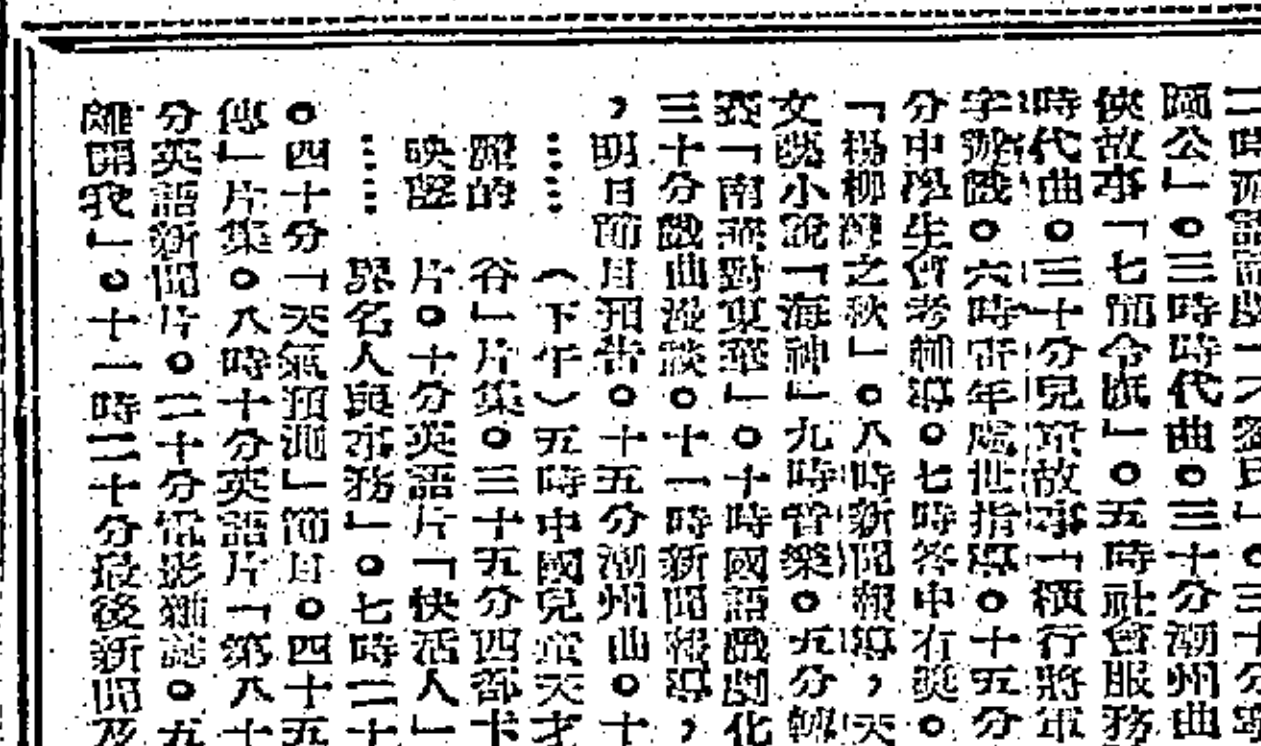 二時潮語話劇「不
氏」。三十分粵
公」。三時時代曲。三十分潮州曲
俠故事「七顆令旗」。五時社會服務
時代曲。三十分兒童故事「橫行將軍
字遊戲。六時青年處世指導。十五分
分中學生會考輔導。七時答中有獎。
「楊柳湖之秋」。八時新聞報導,天
文藝小說「海神」九時音樂。五分轉
賽「南華對東華」。十時國語戲劇化
三十分戲曲漫談。十一時新聞報導,
,明日節目預告。十五分潮州曲。十
麗的映聲
(下午)五時中國兒童天才
谷」片集。三十五分四部卡
片。十分英語片「快活人」
界名人與市務」。七時二十
。四十分「天氣預測」節目。四十五
傳」片集。八時十分英語片「第八十
分英語新聞片。二十分電影雜誌。五
離開我」。十一時二十分最後新聞及